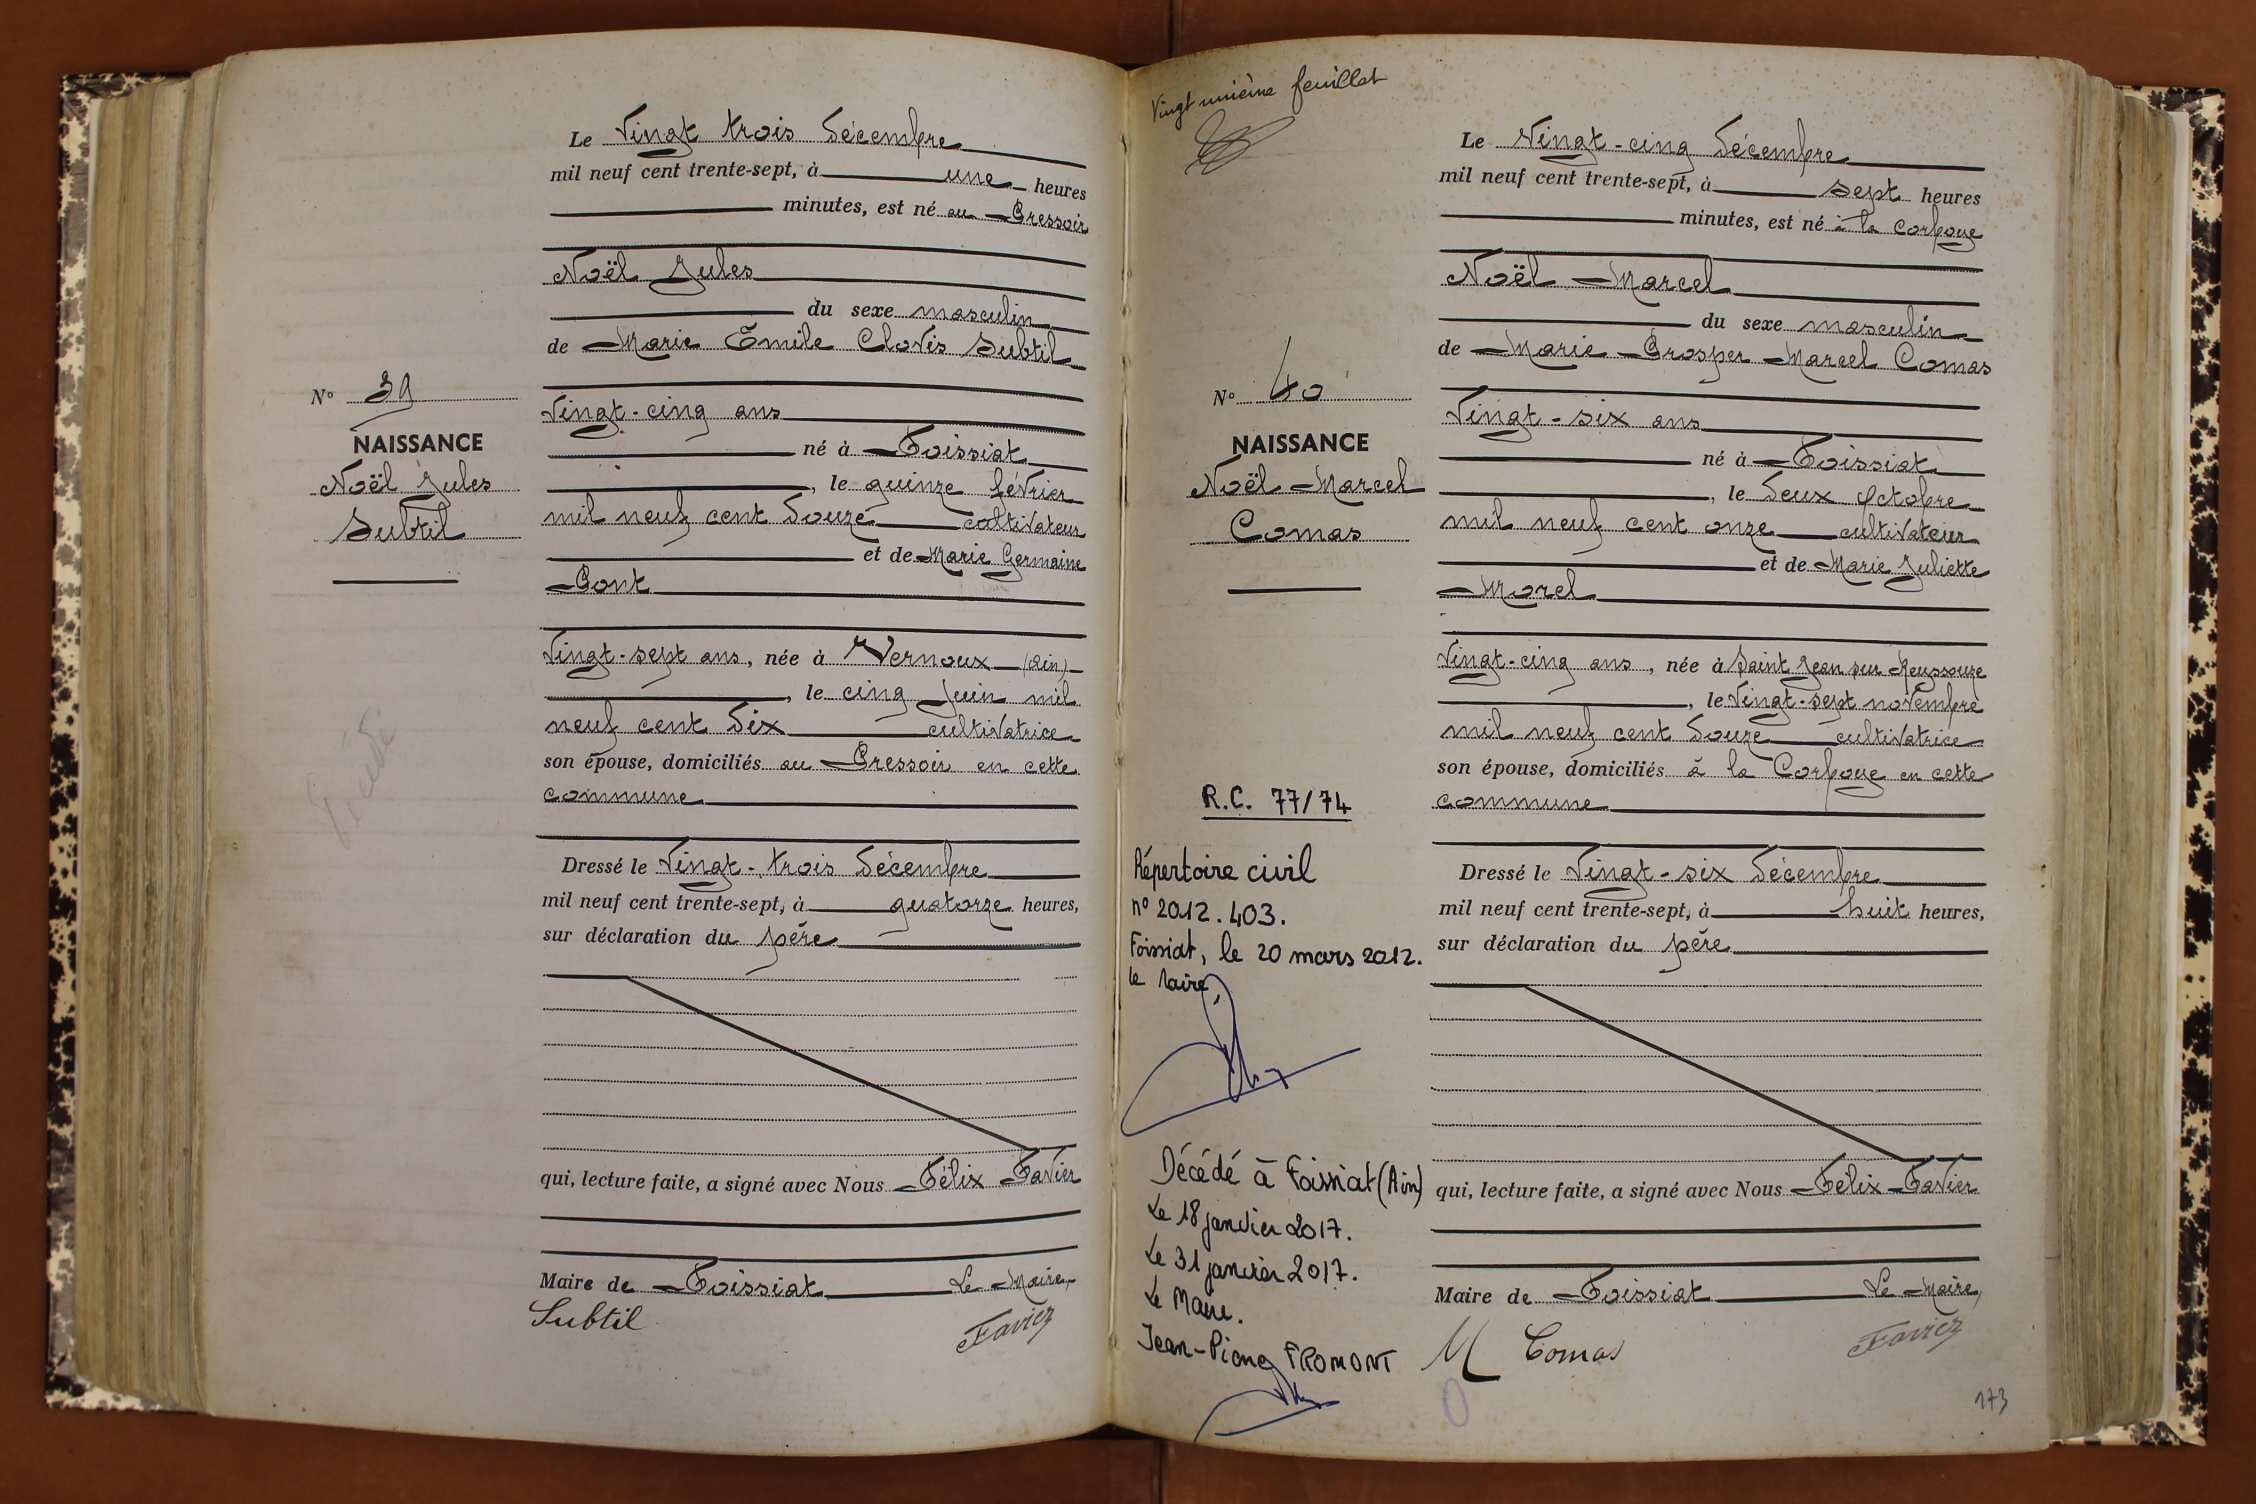 Le Vingt trois Décembre
mil neuf cent trente-sept, à une heures
minutes, est né au Pressoir
Noël Jules
du sexe masculin
de Marie Emile Clovis Subtil
N° 39
NAISSANCE
Noël Jules
Subtil
Vingt-cinq ans
né à Foissiat
, le quinze février
mil neuf cent douze cultivateur
et de Marie Germaine
Pont
Vingt-sept ans, née à Vernoux (Ain)
, le cinq Juin mil
neuf cent dix cultivatrice
son épouse, domiciliés au Pressoir en cette
commune
Dressé le Vingt-trois Décembre
mil neuf cent trente-sept, à quatorze heures,
sur déclaration du père
qui, lecture faite, a signé avec Nous Félix Favier
Maire de Foissiat Le Maire,
Subtil Favier
Vingt unième feuillet
Le Vingt-cinq Décembre
mil neuf cent trente-sept, à sept heures
minutes, est né à la Corfoye
Noël Marcel
du sexe masculin
de Marie Prosper Marcel Comas
N° 40
NAISSANCE
Noël Marcel
Comas
Vingt-six ans
né à Foissiat
, le deux Octobre
mil neuf cent onze cultivateur
et de Marie Juliette
Morel
Vingt-cinq ans, née à Saint Jean sur Reyssouze
, le Vingt-sept novembre
mil neuf cent douze cultivatrice
son épouse, domiciliés à la Corfoye en cette
commune
Dressé le Vingt-six Décembre
mil neuf cent trente-sept, à huit heures,
sur déclaration du père
qui, lecture faite, a signé avec Nous Félix Favier
Maire de Foissiat Le Maire,
M Comas Favier
R.C. 77/74
Répertoire civil
n° 2012.403.
Foissiat, le 20 mars 2012.
Le Maire,
Décédé à Foissiat (Ain)
Le 18 janvier 2017.
Le 31 janvier 2017.
Le Maire.
Jean-Pierre FROMONT
173